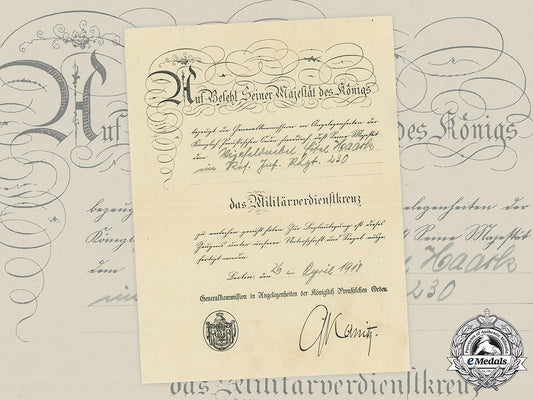 Auf Befehl Seiner Majestät des Königs
bezeugt die Generalkommission in Angelegenheiten der
Königlich Preußischen Orden hierdurch, daß Seine Majestät
dem Vizefeldwebel Haack
im Res. Inf. Regt. 230
das Militärverdienstkreuz
zu verleihen geruht haben. Zur Beglaubigung ist dieses
Zeugnis unter unserer Unterschrift und Siegel ausge-
fertigt worden.
Berlin, den 26 April 1918
Generalkommission in Angelegenheiten der Königlich Preussischen Orden.
eMedals